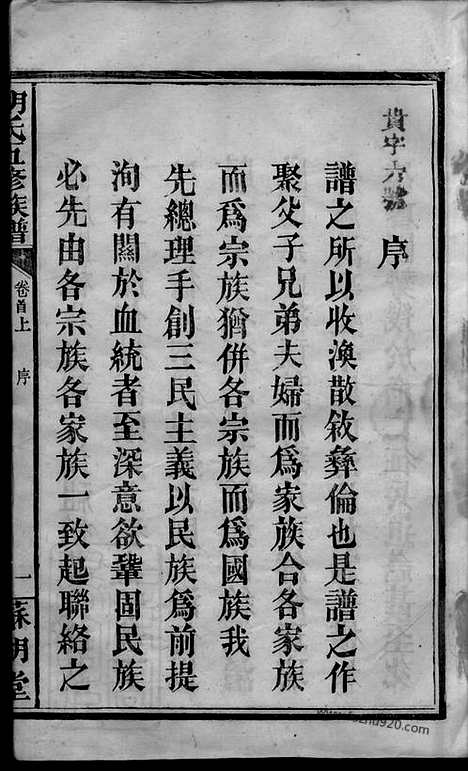 貴字六號
序
譜之所以收渙散敘彝倫也是譜之作
聚父子兄弟夫婦而爲家族合各家族
而爲宗族猶併各宗族而爲國族我
先總理手創三民主義以民族爲前提
洵有關於血統者至深意欲鞏固民族
必先由各宗族各家族一致起聯絡之
胡氏五修族譜
卷首上
序
一
蘇湖堂